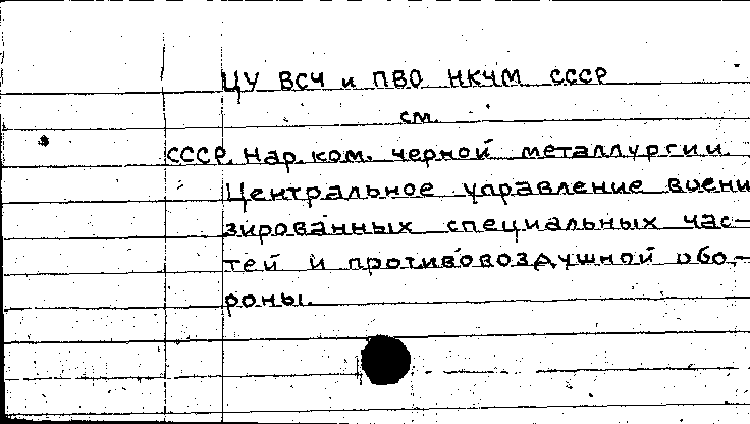 ЦУ ВСЧ и ПВО НКЧМ СССР
см.
СССР. Нар. ком. черной металлургии.
Центральное управление воени
зированных специальных час-
тей и противовоздушной обо-
роны.